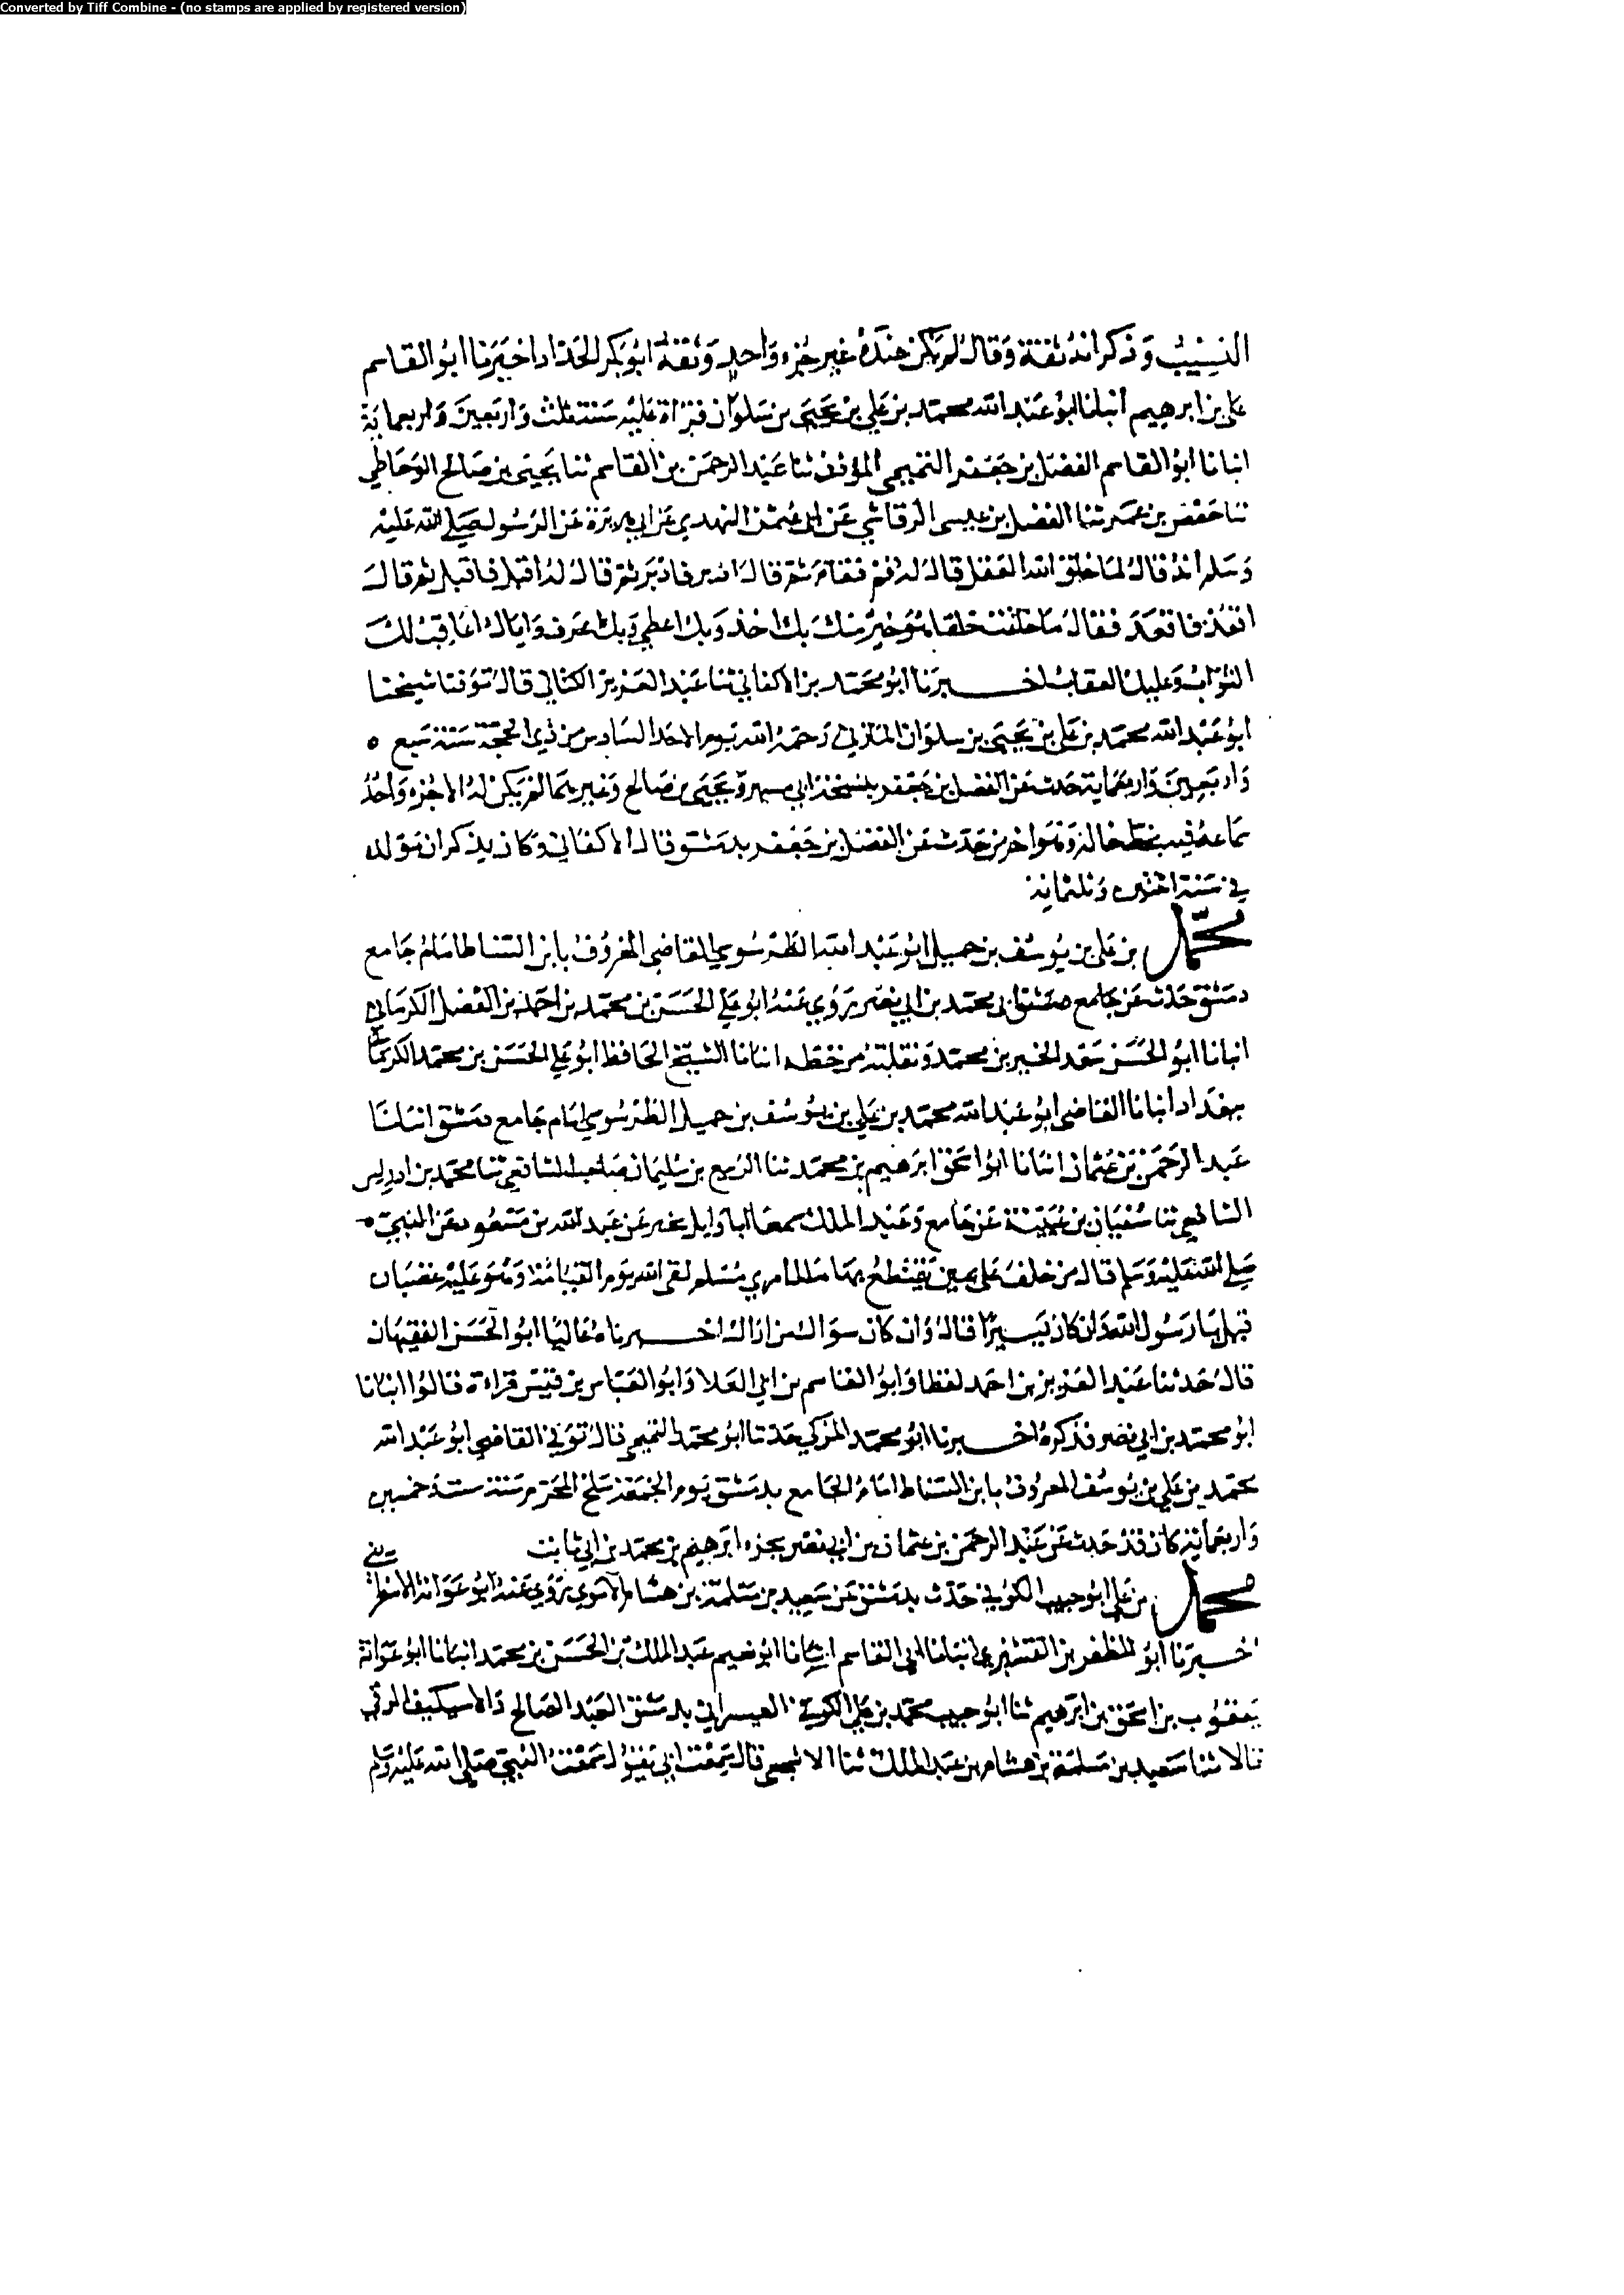 Converted by Tiff Combine - (no stamps are applied by registered version)
النسيب وذكر انه ثقة وقال لم يكن عنده غير جزء واحد وثقه ابو بكر الحداد اخبرنا ابو القاسم
علي بن ابرهيم انبانا ابو عبد الله محمد بن علي بن يحيى بن سلوان قراة عليه سنة ثلث واربعين واربعماية
انبانا ابو القاسم الفضل بن جعفر التميمي المؤذن ثنا عبد الرحمن بن القاسم ثنا يحيى بن صالح الوحاظي
ثنا حفص بن عمر ثنا الفضل بن عيسى الرقاشي عن ابي عثمن النهدي عن ابي هريرة عن الرسول صلى الله عليه
وسلم انه قال لما خلق الله العقل قال له قم فقام ثم قال ادبر فادبر ثم قال له اقبل فاقبل ثم قال
اقعد فاقعد فقال ما خلقت خلقا هو خير منك بك اخذ وبك اعطي وبك اعرف واياك اعاقب لك
الثواب وعليك العقاب اخبرنا ابو محمد بن الاكفاني ثنا عبد العزيز الكتاني قال توفي شيخنا
ابو عبد الله محمد بن علي بن يحيى بن سلوان المازني رحمه الله يوم الاحد السادس من ذي الحجة سنة سبع ه
واربعين واربعماية حدث عن الفضل بن جعفر بنسخة ابي مسهر ويحيى بن صالح وغيرهما لم يكن له الا جزء واحد
سماعه فيه بخط خاله وهو اخر من حدث عن الفضل بن جعفر بدمشق قال الاكفاني وكان يذكر ان مولده
في سنة اثنين وثلثماية
محمد بن علي بن يوسف بن جميل ابو عبد الله الطرسوسي القاضي المعروف بابن السناط امام جامع
دمشق حدث عن جامع دمشق ابي محمد بن ابي نصر روى عنه ابو علي الحسن بن محمد بن احمد بن الفضل الكرماني
انبانا ابو الحسن سعد الخير بن محمد ونقلته من خطه انبانا الشيخ الحافظ ابو علي الحسن بن محمد الكرماني
ببغداد انبانا القاضي ابو عبد الله محمد بن علي بن يوسف بن جميل الطرسوسي امام جامع دمشق انبانا
عبد الرحمن بن عثمان انبانا ابو اسحق ابرهيم بن محمد ثنا الربيع بن سليمان صاحب الشافعي ثنا محمد بن ادريس
الشافعي ثنا سفيان بن عيينة عن جامع وعبد الملك سمعا ابا وايل يخبر عن عبد الله بن مسعود عن النبي
صلى الله عليه وسلم قال من حلف على يمين يقتطع بها مال امري مسلم لقي الله يوم القيامة وهو عليه غضبان
قيل يا رسول الله وان كان يسيرا قال وان كان سواك من اراك اخبرناه عاليا ابو الحسن الفقيهان
قال حدثنا عبد العزيز بن احمد لفظا وابو القاسم بن ابي العلا وابو العباس بن قبيس قراءة قالوا انبانا
ابو محمد بن ابي نصر فذكره اخبرنا ابو محمد المزكي حدثنا ابو محمد التميمي قال توفي القاضي ابو عبد الله
محمد بن علي بن يوسف المعروف بابن السناط امام الجامع بدمشق يوم الجمعة سلخ المحرم سنة ست وخمسين
واربعماية كان قد حدث عن عبد الرحمن بن عثمان بن ابي نصر بجزء ابرهيم بن محمد بن ابي ثابت
محمد بن علي ابو حبيب الكوفي حدث بدمشق عن سعيد بن مسلمة بن هشام الاموي روى عنه ابو عوانة الاسفرايني
اخبرنا ابو المظفر بن القشيري انبانا ابي القاسم انبانا ابو نعيم عبد الملك بن الحسن بن محمد انبانا ابو عوانة
يعقوب بن اسحق بن ابرهيم ثنا ابو حبيب محمد بن علي الكوفي بدمشق العبد الصالح
قالا ثنا سعيد بن مسلمة بن هشام بن عبد الملك ثنا الاشجعي قال سمعت ابي يقول سمعت النبي صلى الله عليه وسلم